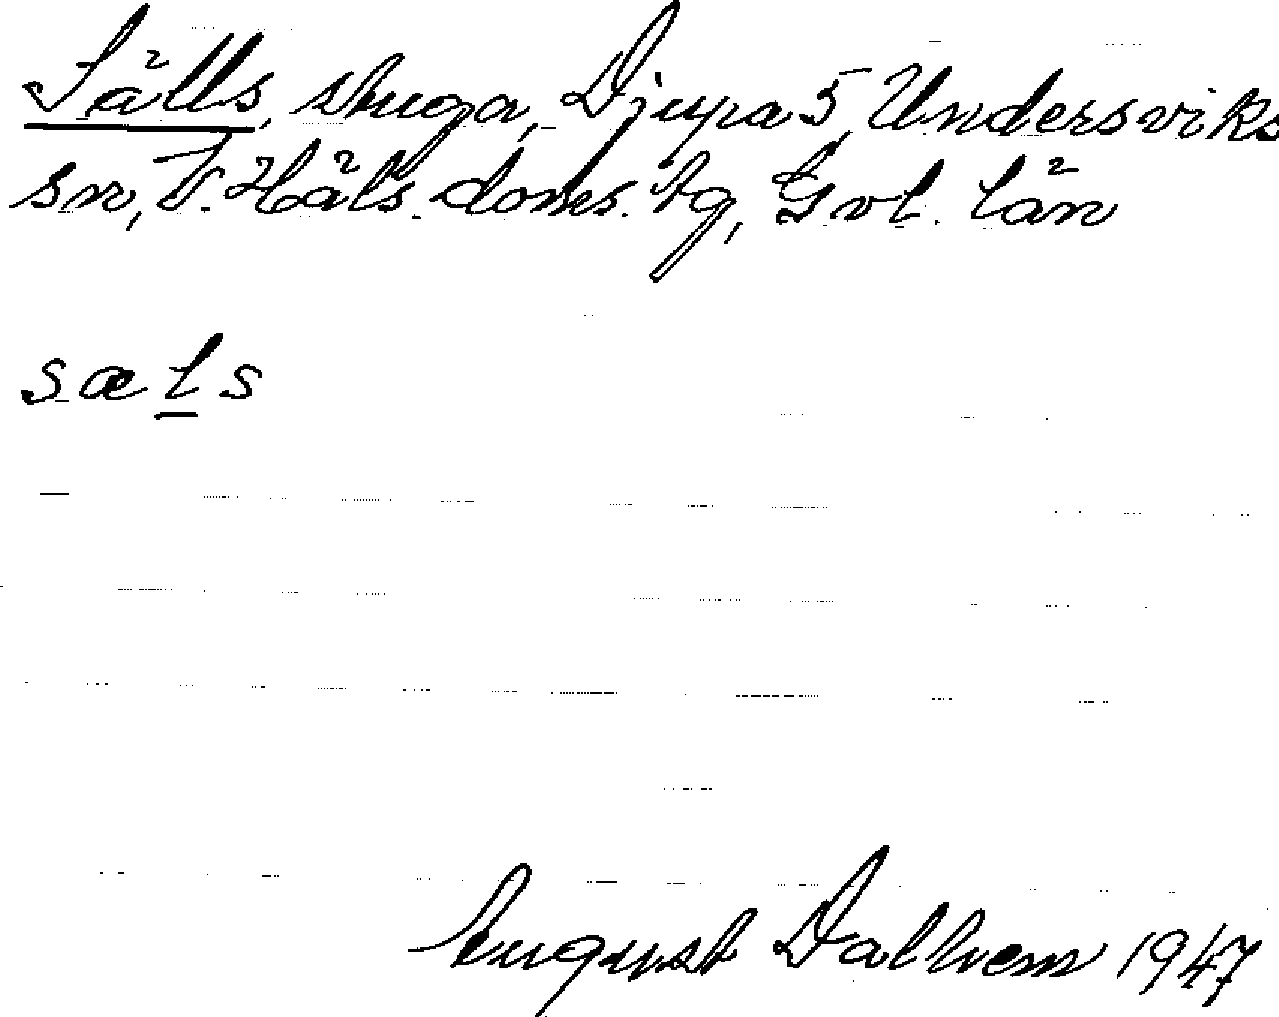 Sälls, stuga, Djupa 5, Undersviks
sn, V. Häls. doms. tg, Gvl. län
sæls
August Dalhem 1947